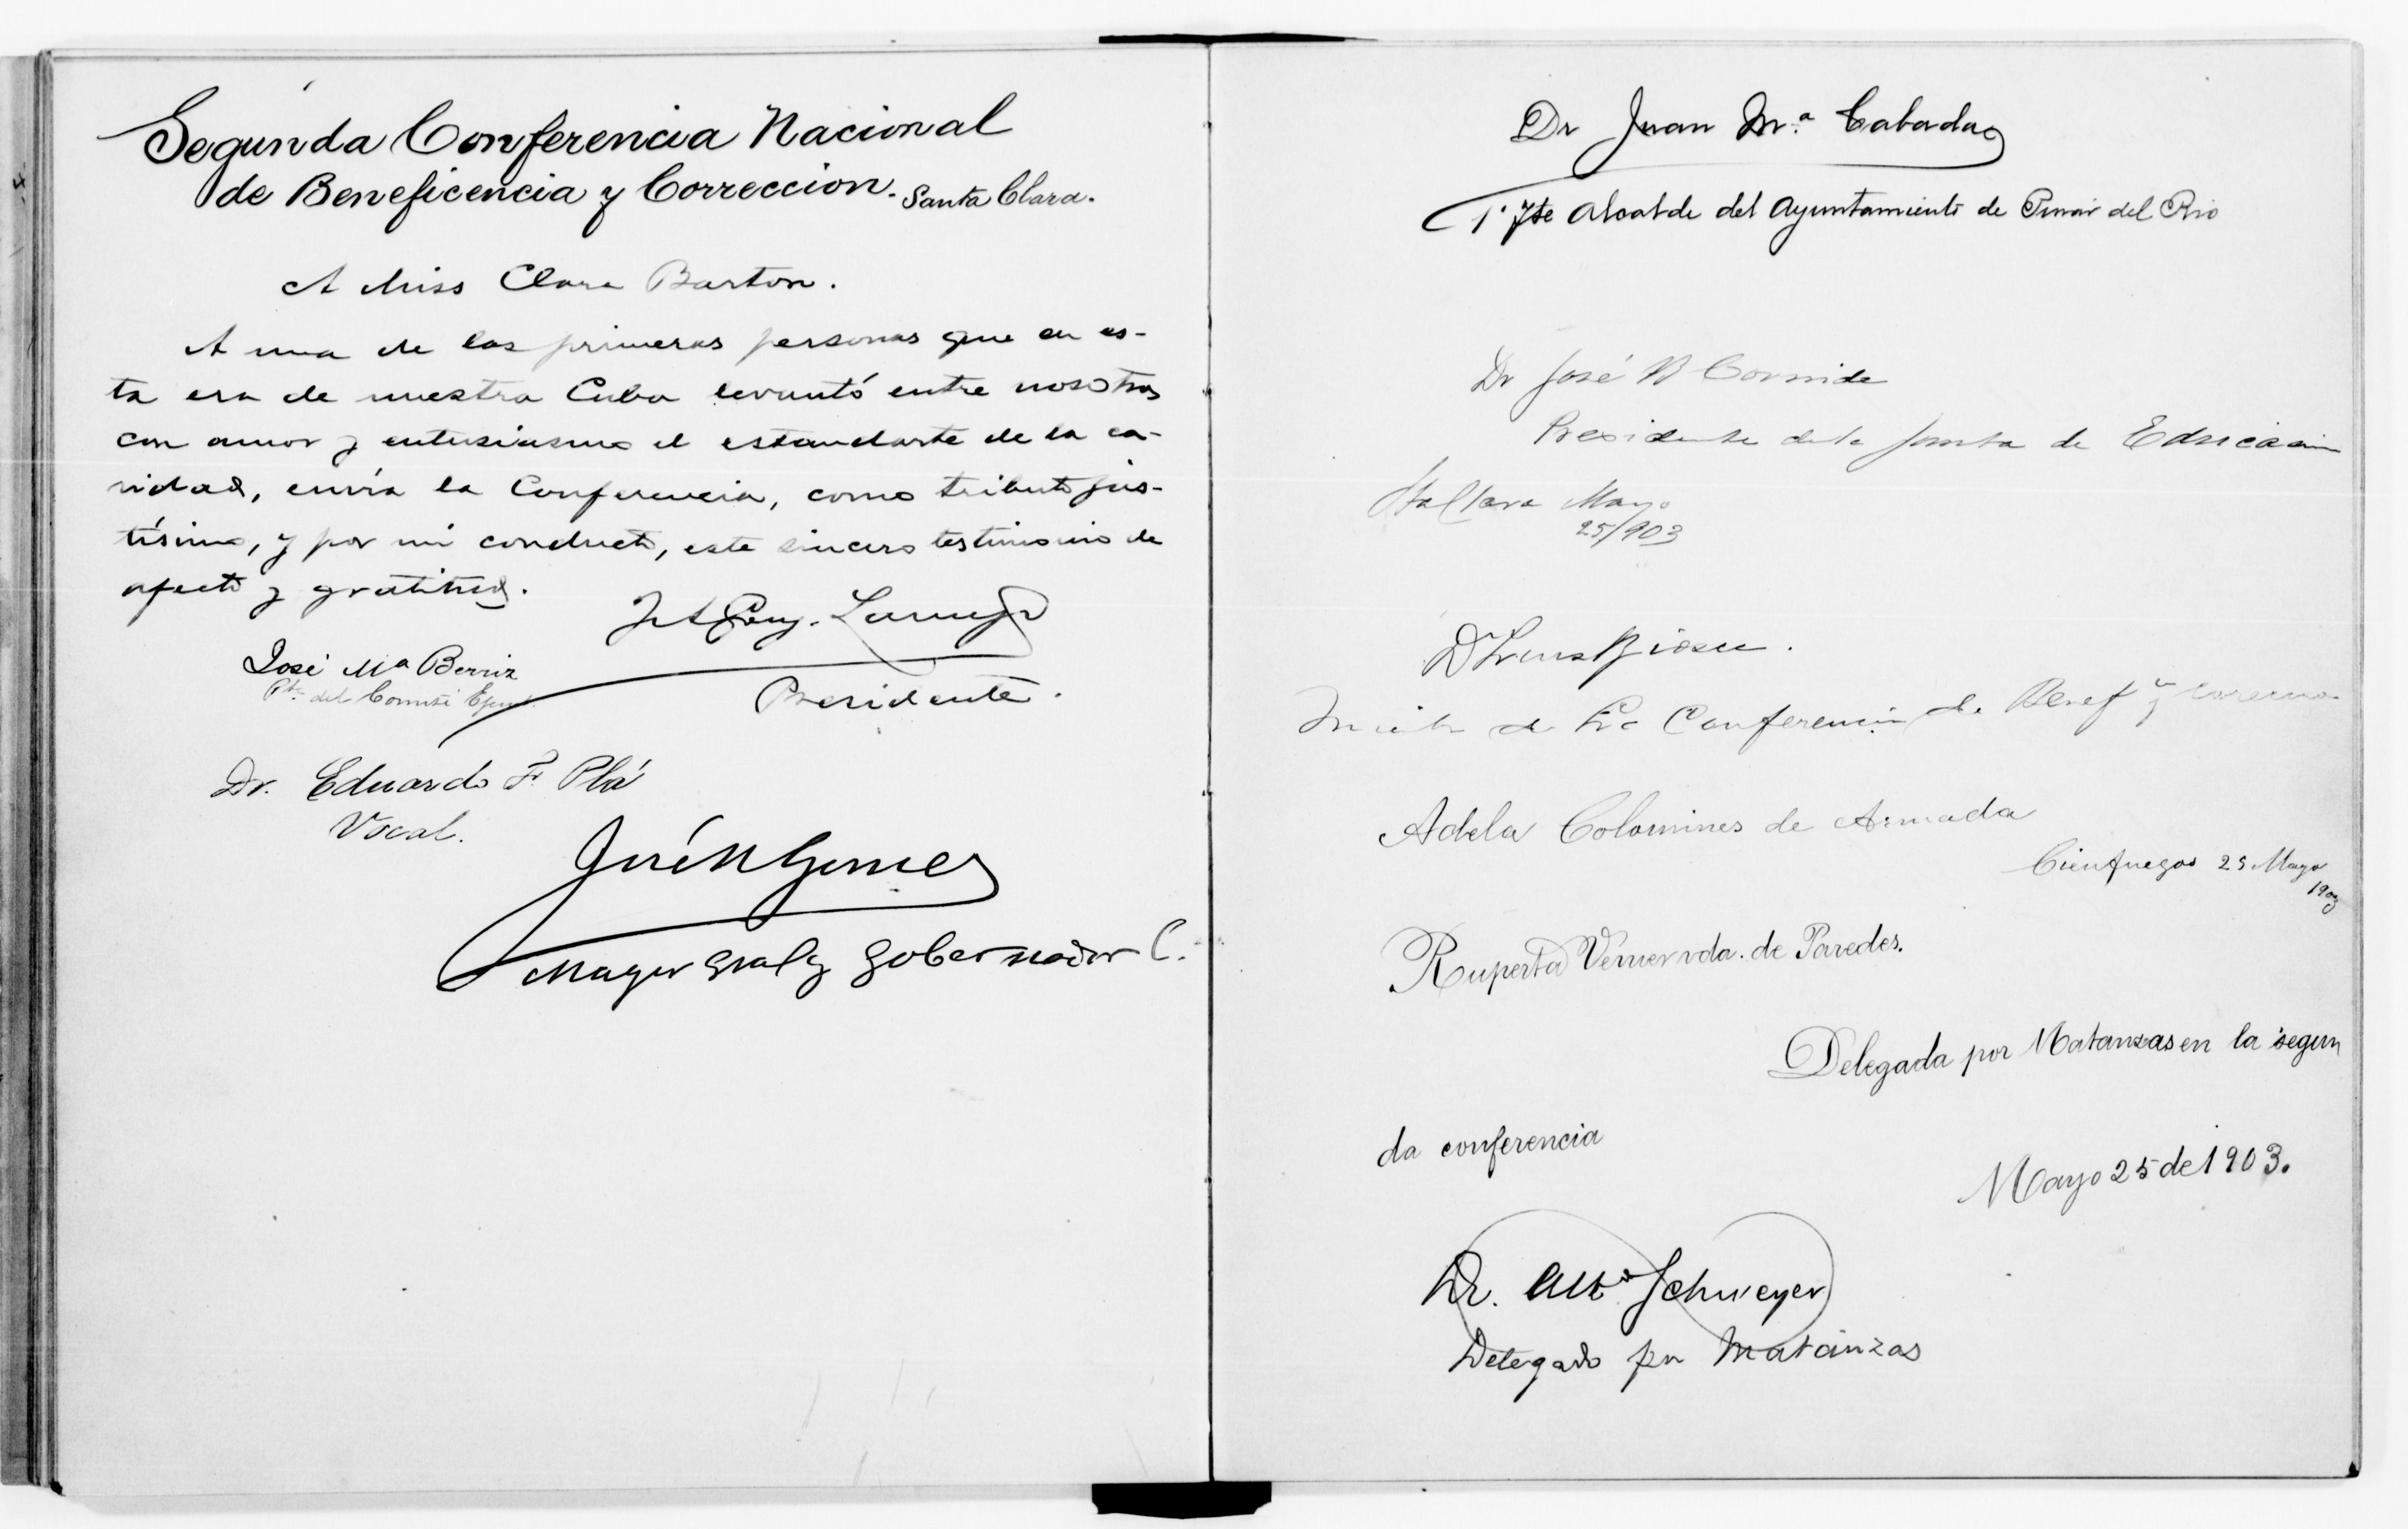 Segunda Conferencia Nacional
de Beneficencia y Correccion. Santa Clara.
A Miss Clara Barton.
A una de las primeras personas que en es-
ta era de nuestra Cuba levantó entre nosotros
con amor y entusiasmo el estandarte de la ca-
ridad, envía la Conferencia, como tributo jus-
tísimo, y por mi conducto, este sincero testimonio de
afecto y gratitud.
José Ma Berriz
Pte del Comité Ejec
Presidente.
Dr. Eduardo F. Plá
Vocal.
José M Gomez
Mayor Gral y Gobernador C.
Dr Juan M.a Cabada
1r Tte Alcalde del Ayuntamiento de Pinar del Rio
Dr José Cornide
Presidente de la Junta de Educacion
Sta Clara Mayo
25/903
de la Conferencia de Benef y
Adela Colomines de Armada
Cienfuegos 25 Mayo
1903
Ruperta vda. de Paredes.
Delegada por Matanzas en la segun
da conferencia
Mayo 25 de 1903.
Dr. Alb.to Schweyer
Delegado por Matanzas